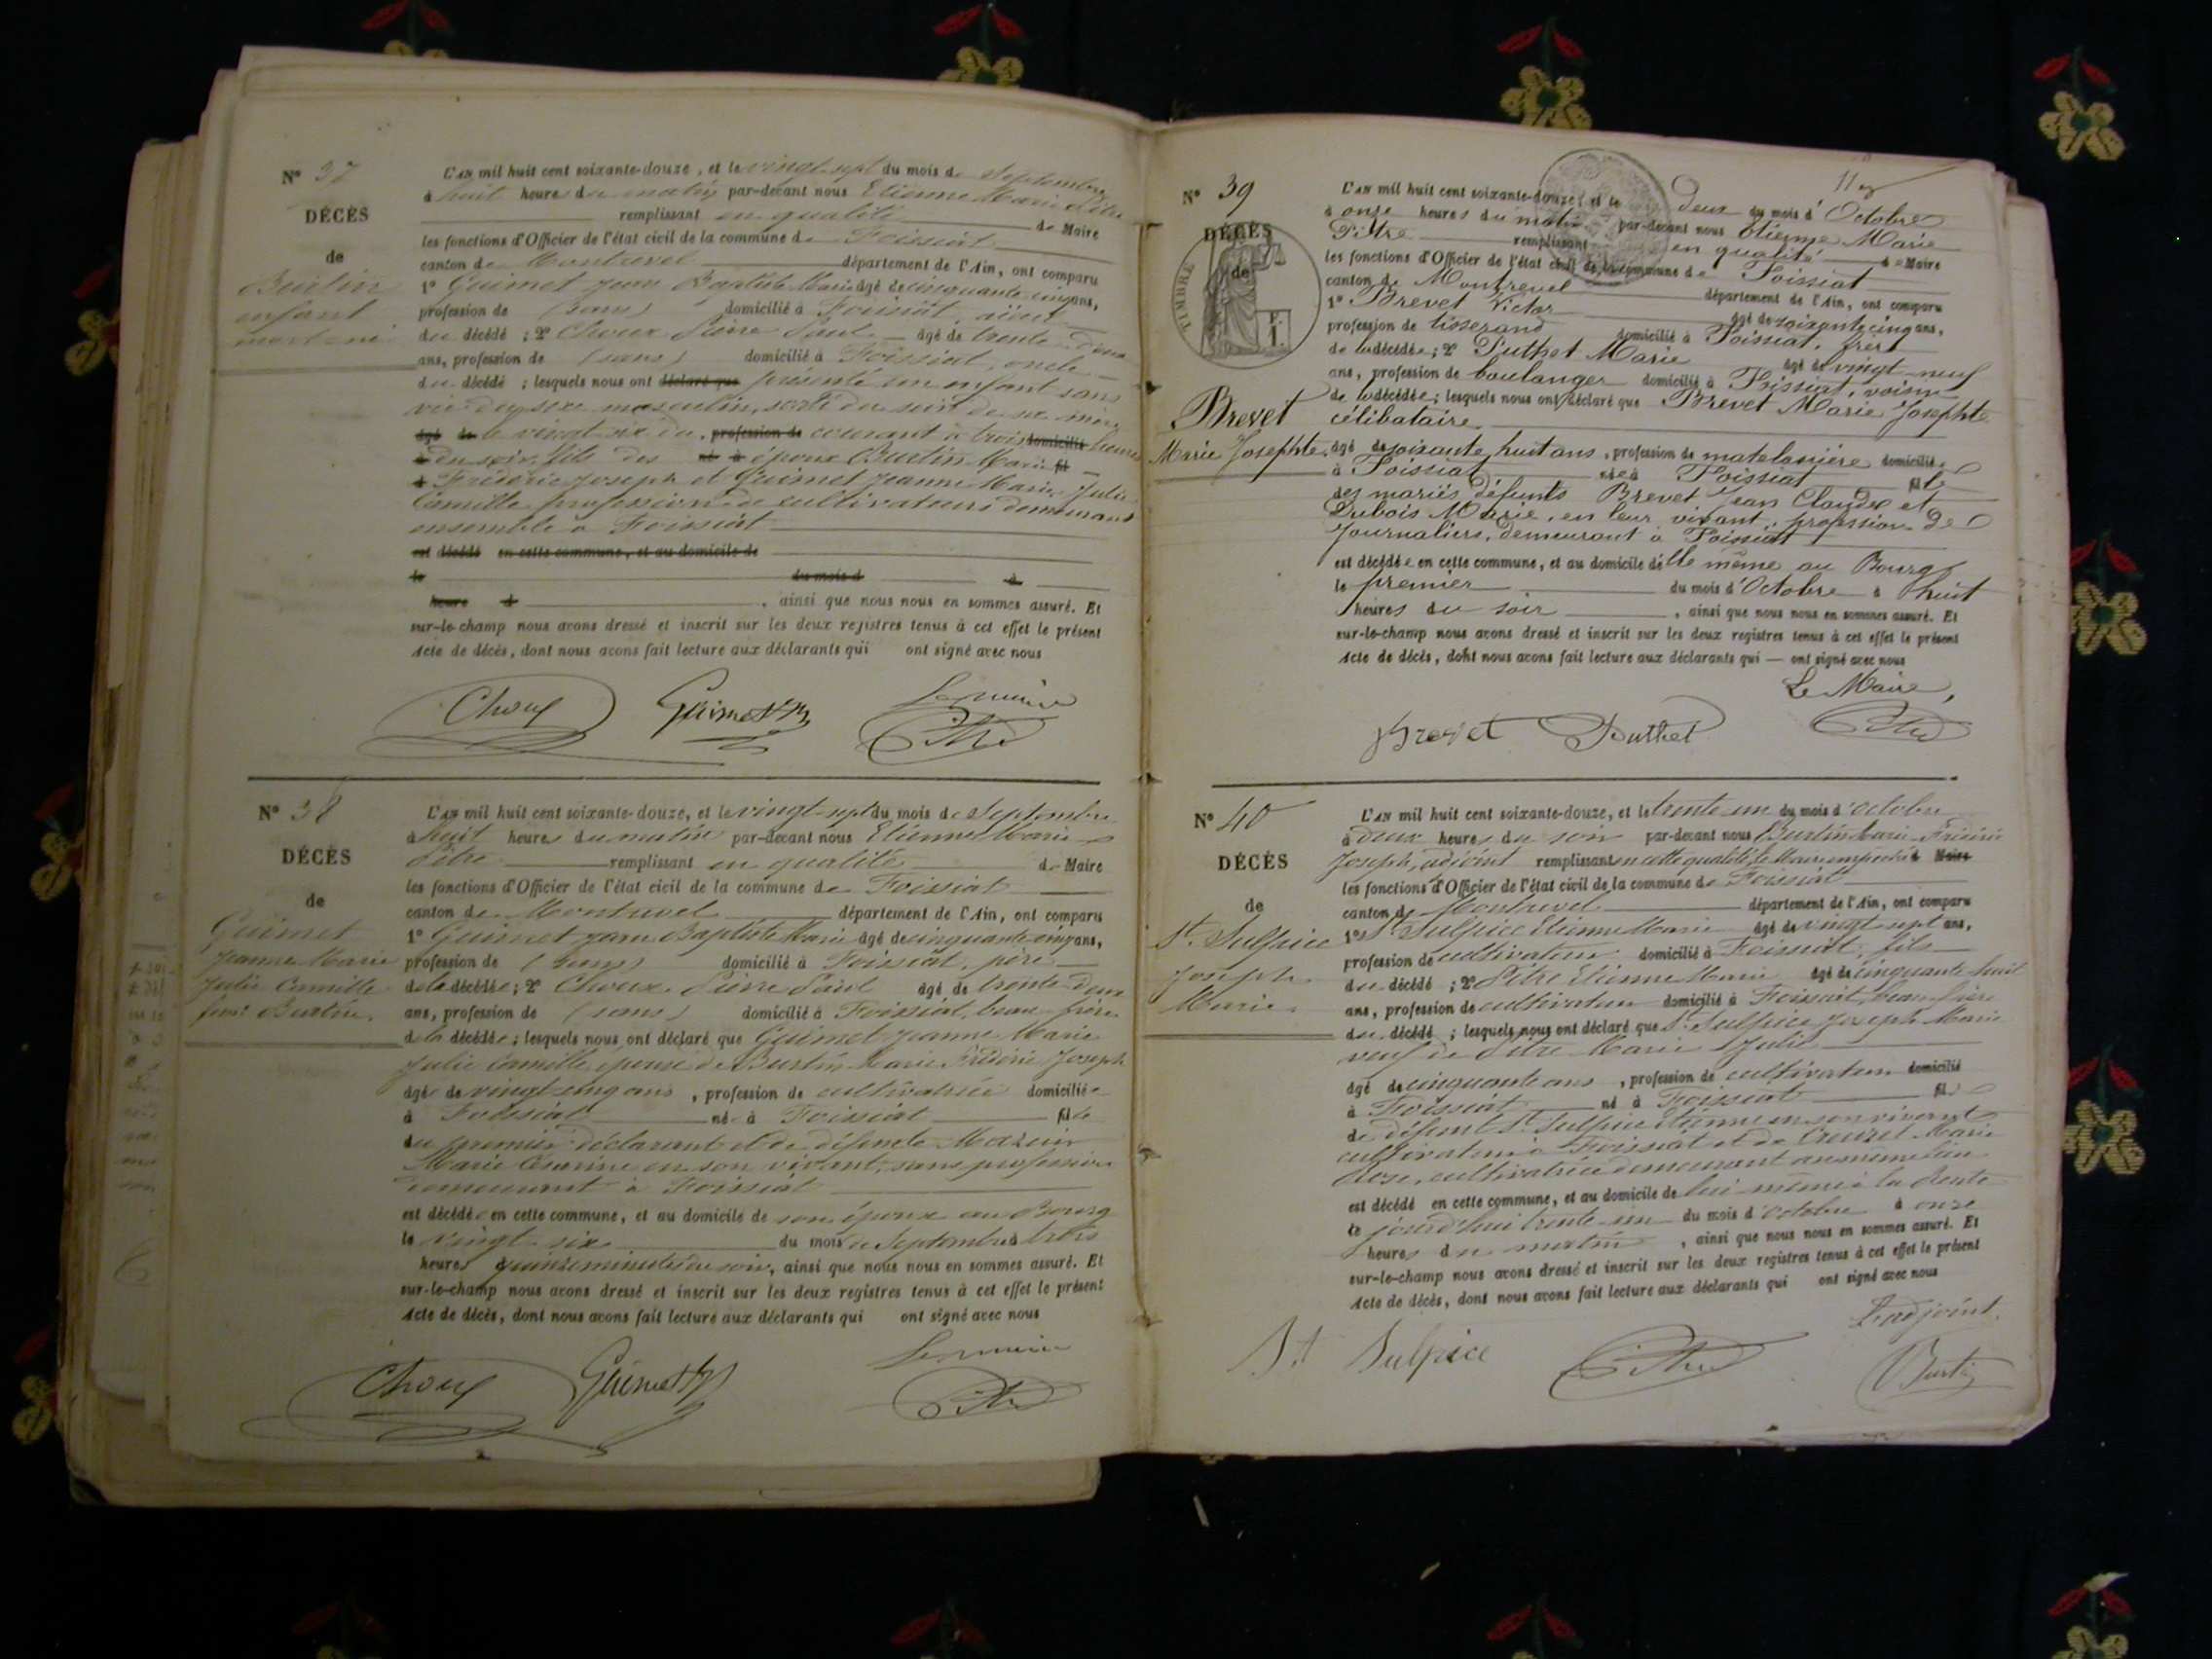 N° 37
DÉCÈS
de
Burtin
enfant
mort-né
L'An mil huit cent soixante-douze, et le vingt-sept du mois de Septembre
à huit heures du matin par-devant nous Etienne Marie Pitre
remplissant en qualité de Maire
les fonctions d'Officier de l'état civil de la commune de Foissiat
canton de Montrevel département de l'Ain, ont comparu
1° Guimet Jean Baptiste Marie âgé de cinquante cinq ans,
profession de (sans) domicilié à Foissiat, aïeul
du décédé ; 2° Choux Pierre Paul âgé de trente-deux
ans, profession de (sans) domicilié à Foissiat, oncle
du décédé ; lesquels nous ont déclaré que présenté un enfant sans
vie du sexe masculin, sorti du sein de sa mère
âgé de le vingt-six du, profession de courant à trois domicilié heures
à du soir, fils des né à époux Burtin Marie fil
d Frédéric Joseph et Guimet Jeanne Marie Julie
Camille profession de cultivateurs demeurant
ensemble à Foissiat
est décédé en cette commune, et au domicile de
le du mois d à
heure d , ainsi que nous nous en sommes assuré. Et
sur-le-champ nous avons dressé et inscrit sur les deux registres tenus à cet effet le présent
Acte de décès, dont nous avons fait lecture aux déclarants qui ont signé avec nous
Le maire
Choux Guimet Pitre
N° 38
DÉCÈS
de
Guimet
Jeanne Marie
Julie Camille
fme Burtin.
L'An mil huit cent soixante-douze, et le vingt-sept du mois de Septembre
à huit heures du matin par-devant nous Etienne Marie
Pitre remplissant en qualité de Maire
les fonctions d'Officier de l'état civil de la commune de Foissiat
canton de Montrevel département de l'Ain, ont comparu
1° Guimet Jean Baptiste Marie âgé de cinquante-cinq ans,
profession de (sans) domicilié à Foissiat, père
de la décédée ; 2° Choux Pierre Paul âgé de trente-deux
ans, profession de (sans) domicilié à Foissiat, beau-frère
de la décédée ; lesquels nous ont déclaré que Guimet Jeanne Marie
Julie Camille épouse de Burtin Marie Frédéric Joseph
âgée de vingt-cinq ans, profession de cultivatrice domiciliée
à Foissiat née à Foissiat fille
du premier déclarant et de défunte
Marie Césarine en son vivant, sans profession
demeurant à Foissiat
est décédée en cette commune, et au domicile de son époux au Bourg
le vingt-six du mois de Septembre à trois
heures quinze minutes du soir, ainsi que nous nous en sommes assuré. Et
sur-le-champ nous avons dressé et inscrit sur les deux registres tenus à cet effet le présent
Acte de décès, dont nous avons fait lecture aux déclarants qui ont signé avec nous
Le maire
Choux Guimet Pitre
N° 39
DÉCÈS
de
TIMBRE
F. 1.
Brevet
Marie Josephte.
L'An mil huit cent soixante-douze, et le deux du mois d'Octobre
à onze heures du matin par-devant nous Etienne Marie
Pitre remplissant en qualité de Maire
les fonctions d'Officier de l'état civil de la commune de Foissiat
canton de Montrevel département de l'Ain, ont comparu
1° Brevet Victor âgé de soixante cinq ans,
profession de tisserand domicilié à Foissiat, frère
de la décédée ; 2° Puthet Marie âgé de vingt-neuf
ans, profession de boulanger domicilié à Foissiat, voisin
de la décédée ; lesquels nous ont déclaré que Brevet Marie Josephte
célibataire
âgé de soixante huit ans, profession de matelassière domiciliée
à Foissiat née à Foissiat fille
des mariés défunts Brevet Jean Claude et
Dubois Marie, en leur vivant, profession de
Journaliers, demeurant à Foissiat
est décédée en cette commune, et au domicile d'elle même au Bourg
le premier du mois d'Octobre à huit
heures du soir , ainsi que nous nous en sommes assuré. Et
sur-le-champ nous avons dressé et inscrit sur les deux registres tenus à cet effet le présent
Acte de décès, dont nous avons fait lecture aux déclarants qui — ont signé avec nous
Le Maire,
Brevet Puthet Pitre
N° 40
DÉCÈS
de
St. Sulpice
Joseph
Marie
L'An mil huit cent soixante-douze, et le trente un du mois d'octobre
à deux heures du soir par-devant nous Burtin Marie Frédéric
Joseph, adjoint remplissant en cette qualité, le Maire empêché d Maire
les fonctions d'Officier de l'état civil de la commune de Foissiat
canton de Montrevel département de l'Ain, ont comparu
1° St. Sulpice Etienne Marie âgé de vingt-sept ans,
profession de cultivateur domicilié à Foissiat, fils
du décédé ; 2° Pitre Etienne Marie âgé de cinquante-huit
ans, profession de cultivateur domicilié à Foissiat, beau-frère
du décédé ; lesquels nous ont déclaré que St. Sulpice Joseph Marie
veuf de Pitre Marie Julie
âgé de cinquante ans, profession de cultivateur domicilié
à Foissiat né à Foissiat fils
de défunt St. Sulpice Etienne en son vivant
cultivateur à Foissiat et de Marie
cultivatrice demeurant au même lieu
est décédé en cette commune, et au domicile de lui même à la
le jourd'hui trente-un du mois d'octobre à onze
heures du matin , ainsi que nous nous en sommes assuré. Et
sur-le-champ nous avons dressé et inscrit sur les deux registres tenus à cet effet le présent
Acte de décès, dont nous avons fait lecture aux déclarants qui ont signé avec nous
L'adjoint.
St Sulpice Pitre Burtin